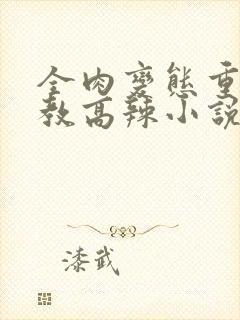 全肉變態重
教高辣小說
漆武